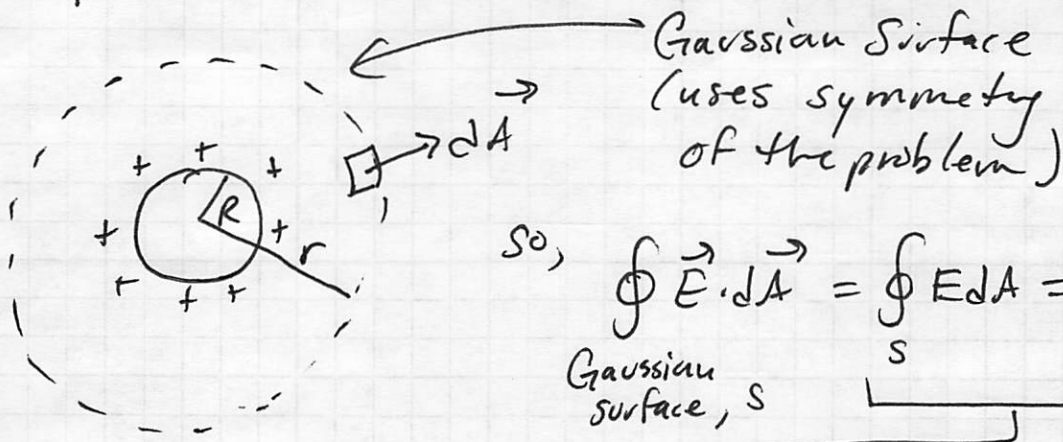 Gaussian Surface
(uses symmetry
of the problem)
+ + + + + + + +
R
r
dA⃗
so, ∮ E⃗·dA⃗ = ∮ E dA =
S
Gaussian
surface, S